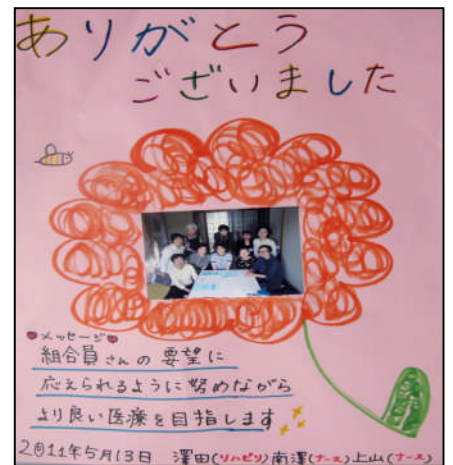 ありがとう
ございました
メッセージ
組合員さんの要望に
応えられるように努めながら
より良い医療を目指します
2011年5月13日 澤田(リハビリ)南澤(ナース)上山(ナース)